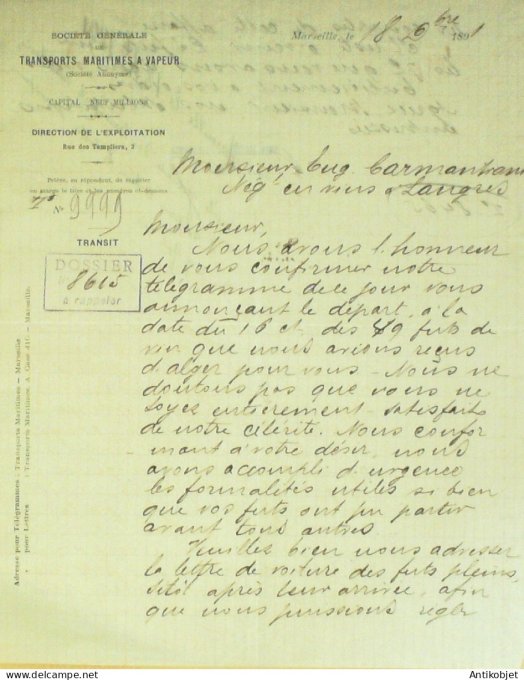 SOCIÉTÉ GÉNÉRALE
DE
TRANSPORTS MARITIMES A VAPEUR
(Société Anonyme)
CAPITAL NEUF MILLIONS
DIRECTION DE L'EXPLOITATION
Rue des Templiers, 3
Prière, en répondant, de rappeler
en marge le titre et les numéros ci-dessous
N° 9999
TRANSIT
DOSSIER
8615
à rappeler
Adresse pour Télégrammes : Transports Maritimes — Marseille.
» pour Lettres : Transports Maritimes A — Marseille.
Marseille, le 18 9bre 1891
Monsieur Eug.
Nég en vins à Langres
Monsieur,
Nous avons l'honneur
de vous confirmer notre
télégramme de ce jour vous
annonçant le départ, à la
date du 16 ct, des 89 futs de
vin que nous avions reçus
d'alger pour vous - Nous ne
doutons pas que vous ne
soyez entièrement satisfait
de notre célérité. Nous confor
mant à votre désir, nous
avons accompli d'urgence
les formalités utiles si bien
que vos futs ont pu partir
avant tous autres.
Veuillez bien nous adresser
la lettre de voiture des futs pleins,
sitôt après leur arrivée, afin
que nous puissions régler
Antikobjet